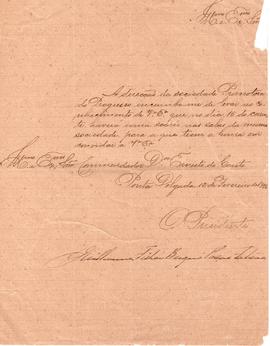 Illmo Exmo Snr
A direcção da sociedade Promotora
do Progresso incumbe-me de levar ao co-
nhecimento de V. Exª que no dia 16 do corren-
te, haverá uma soirée nas salas da mesma
sociedade para a qual tem a honra de
convidar a V. Exª
Illmo Exmo Snr Commendador Dor Ernesto do Canto
Ponta Delgada 12 de Fevereiro de
O Presidente
Guilherme